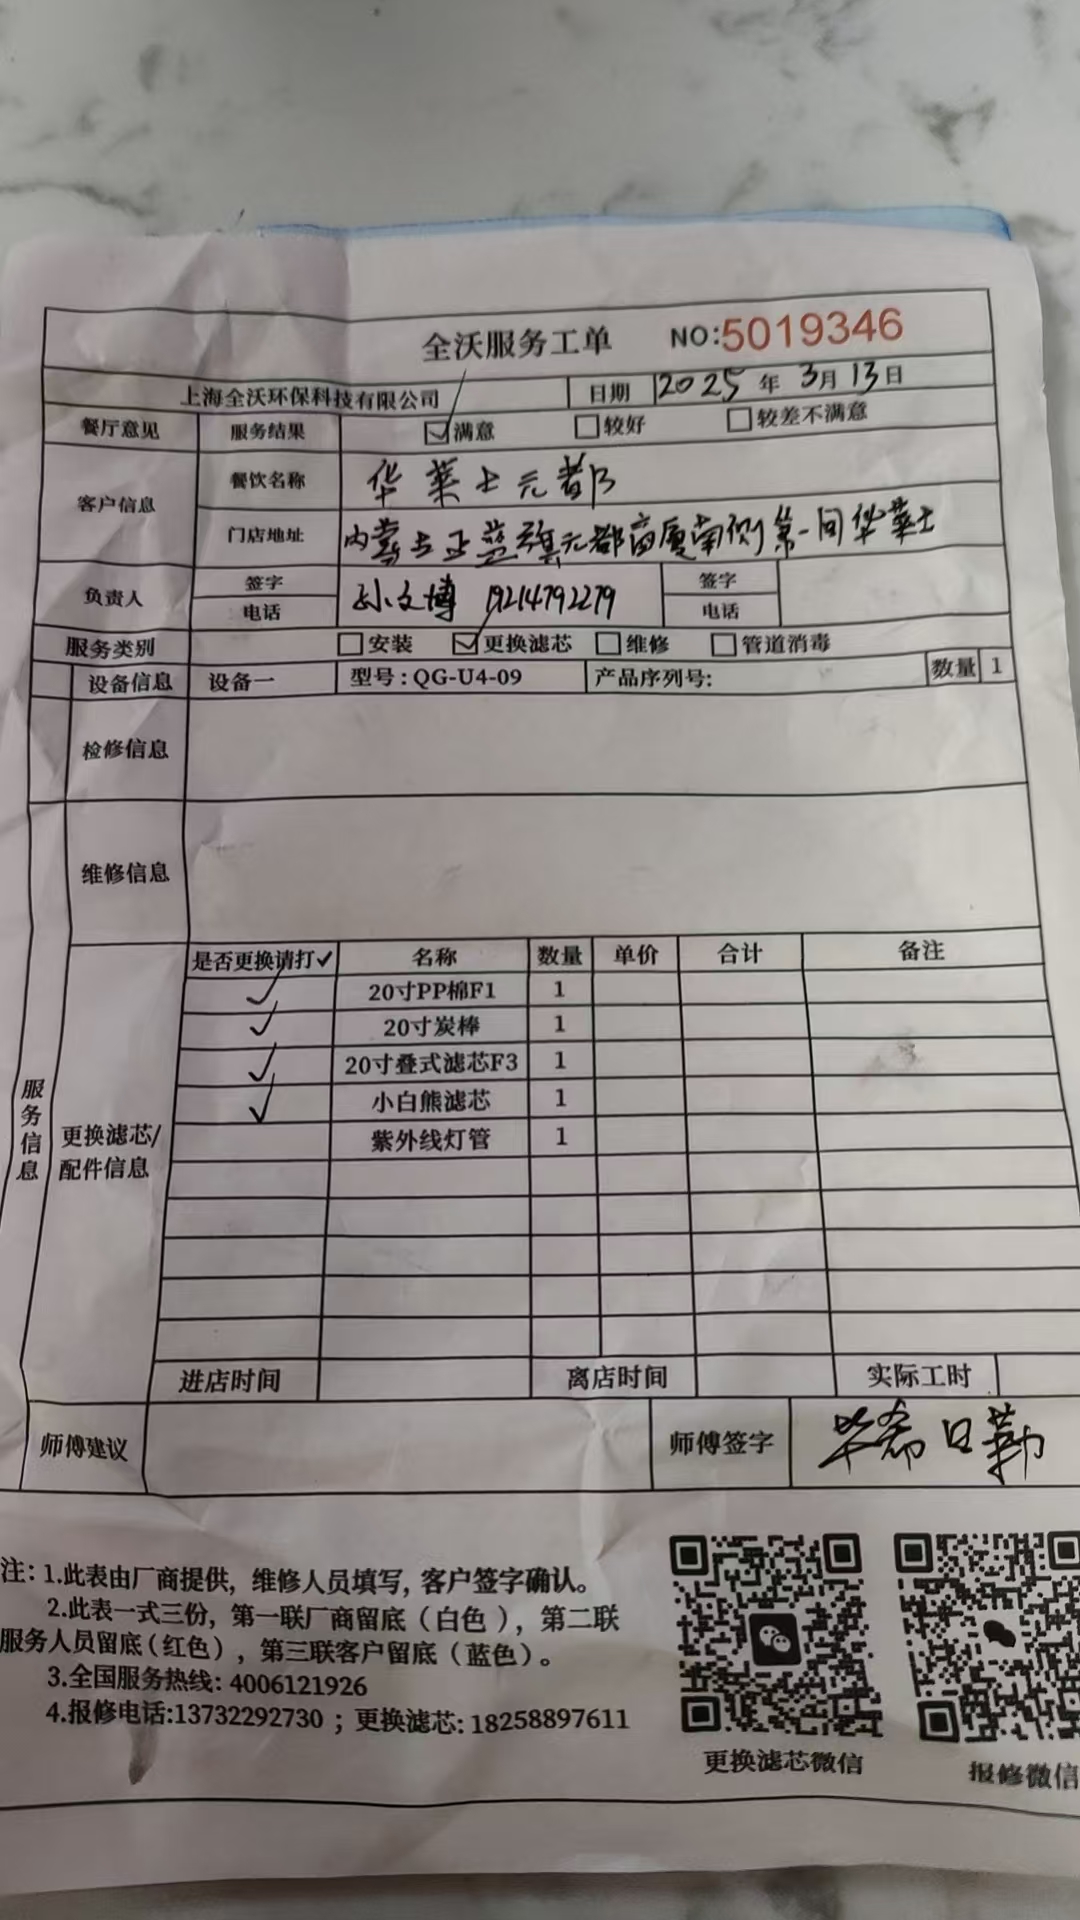 全沃服务工单 NO:5019346
上海全沃环保科技有限公司 日期 2025年3月13日
餐厅意见 服务结果 ☑满意 □较好 □较差不满意
客户信息 餐饮名称 华莱士元都
门店地址 内蒙古正蓝旗元都商厦南侧第一间华莱士
负责人 签字 孙文博 签字
电话 19214792279 电话
服务类别 □安装 ☑更换滤芯 □维修 □管道消毒
设备信息 设备一 型号:QG-U4-09 产品序列号: 数量 1
检修信息
维修信息
服务信息
更换滤芯/配件信息
是否更换请打✓ 名称 数量 单价 合计 备注
✓ 20寸PP棉F1 1
✓ 20寸炭棒 1
✓ 20寸叠式滤芯F3 1
✓ 小白熊滤芯 1
紫外线灯管 1
进店时间 离店时间 实际工时
师傅建议 师傅签字 毕希日勒
注:1.此表由厂商提供,维修人员填写,客户签字确认。
2.此表一式三份,第一联厂商留底(白色),第二联
服务人员留底(红色),第三联客户留底(蓝色)。
3.全国服务热线:4006121926
4.报修电话:13732292730;更换滤芯:18258897611
更换滤芯微信 报修微信